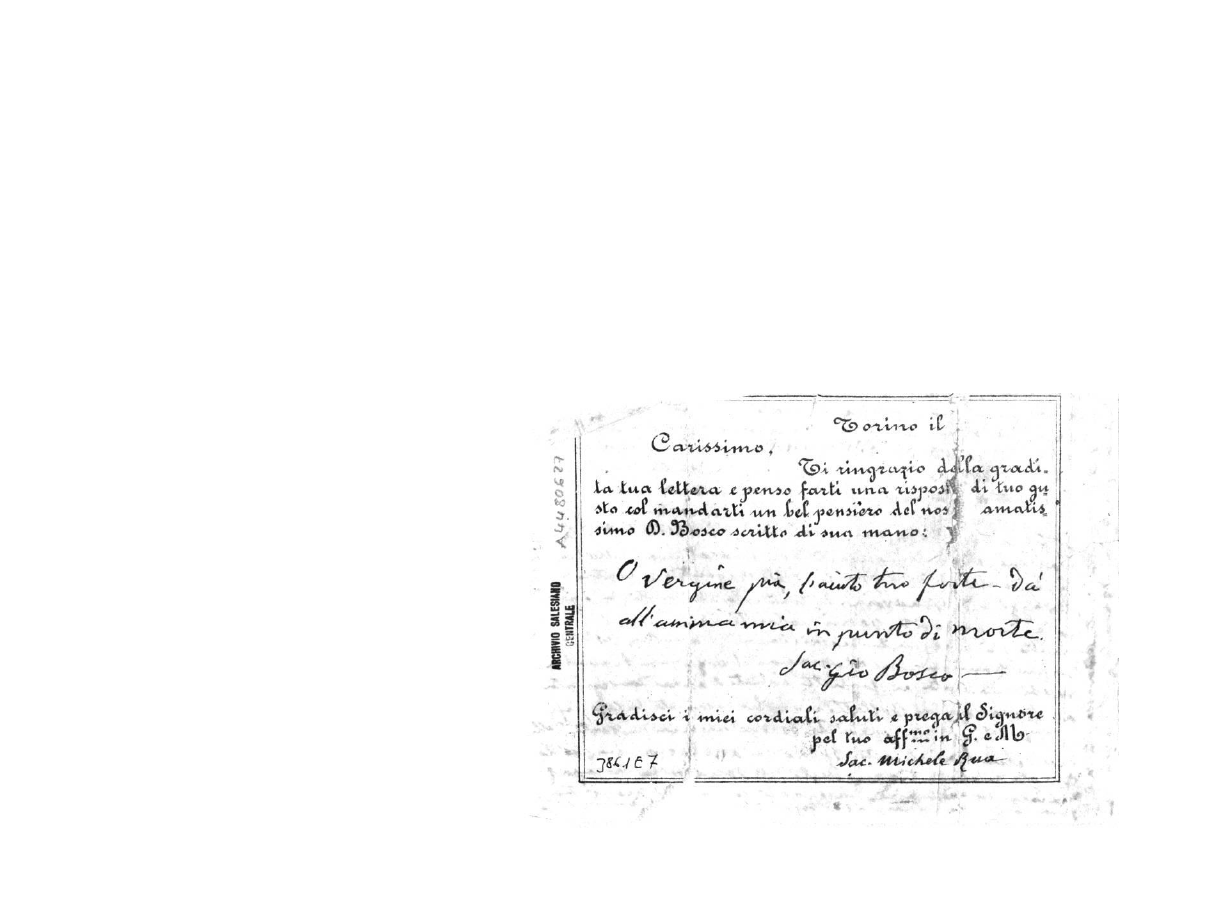 Torino il
Carissimo,
Ti ringrazio della gradi-
ta tua lettera e penso farti una rispos di tuo gu
sto col mandarti un bel pensiero del nos amatis
simo D. Bosco scritto di sua mano:
O Vergine pia, l'aiuto tuo forte - Da'
all'anima mia in punto di morte.
Sac. Gio Bosco
Gradisci i miei cordiali saluti e prega il Signore
pel tuo affmo in G. e M
Sac. Michele Rua
386.1 E 7
A4480627
ARCHIVIO SALESIANO
CENTRALE